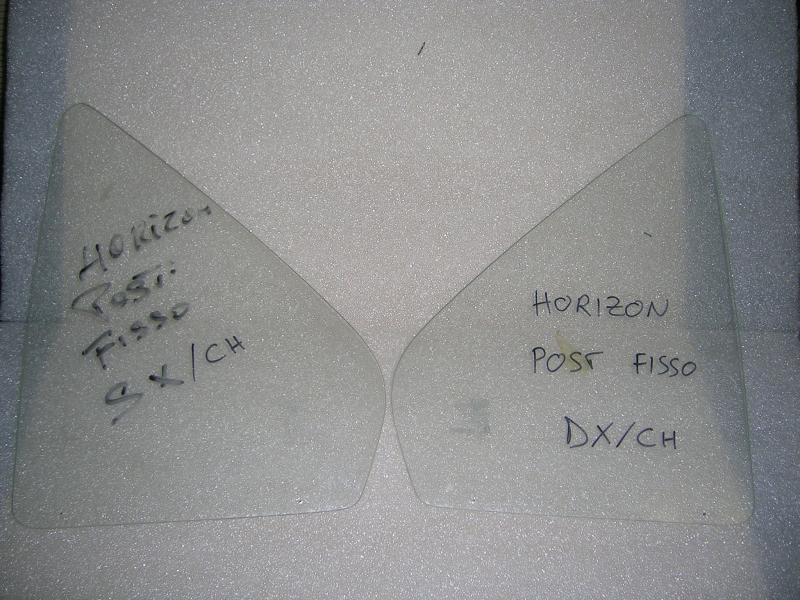 HORIZON
POST.
FISSO
SX/CH
HORIZON
POST FISSO
DX/CH